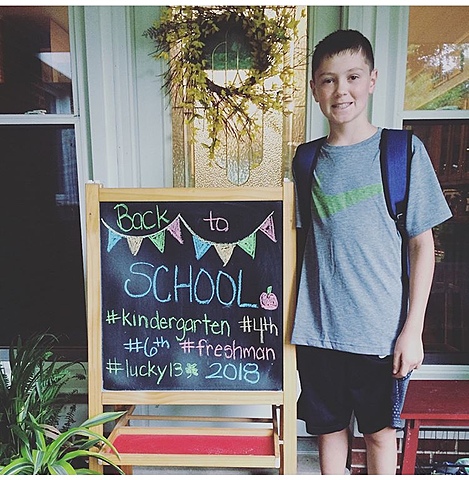 Back to
SCHOOL
#kindergarten #4th
#6th #freshman
#lucky13 2018